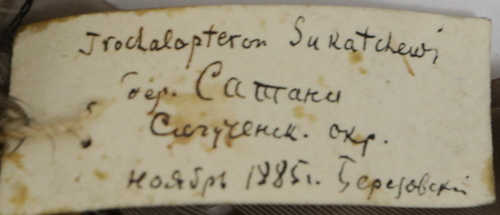 Trochalopteron Sukatchewi
дер. Сатани
окр.
ноябрь 1885г. Березовскій